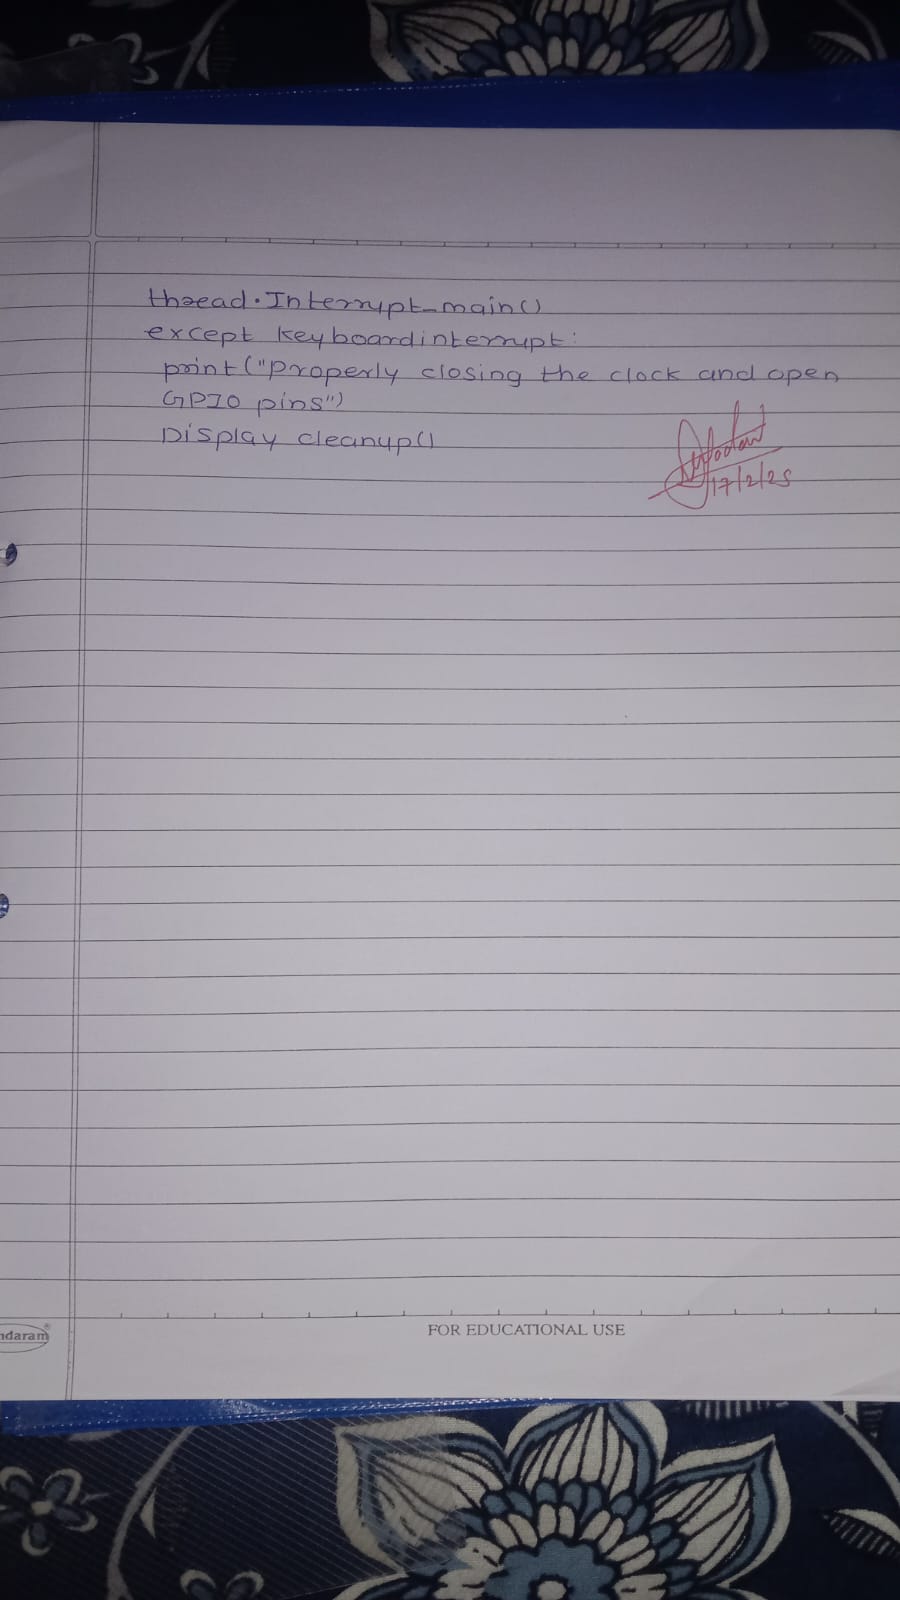 thread.Interrupt_main()
except keyboardinterrupt:
print("Properly closing the clock and open
GPIO pins")
Display cleanup()
17/2/25
FOR EDUCATIONAL USE
ndaram